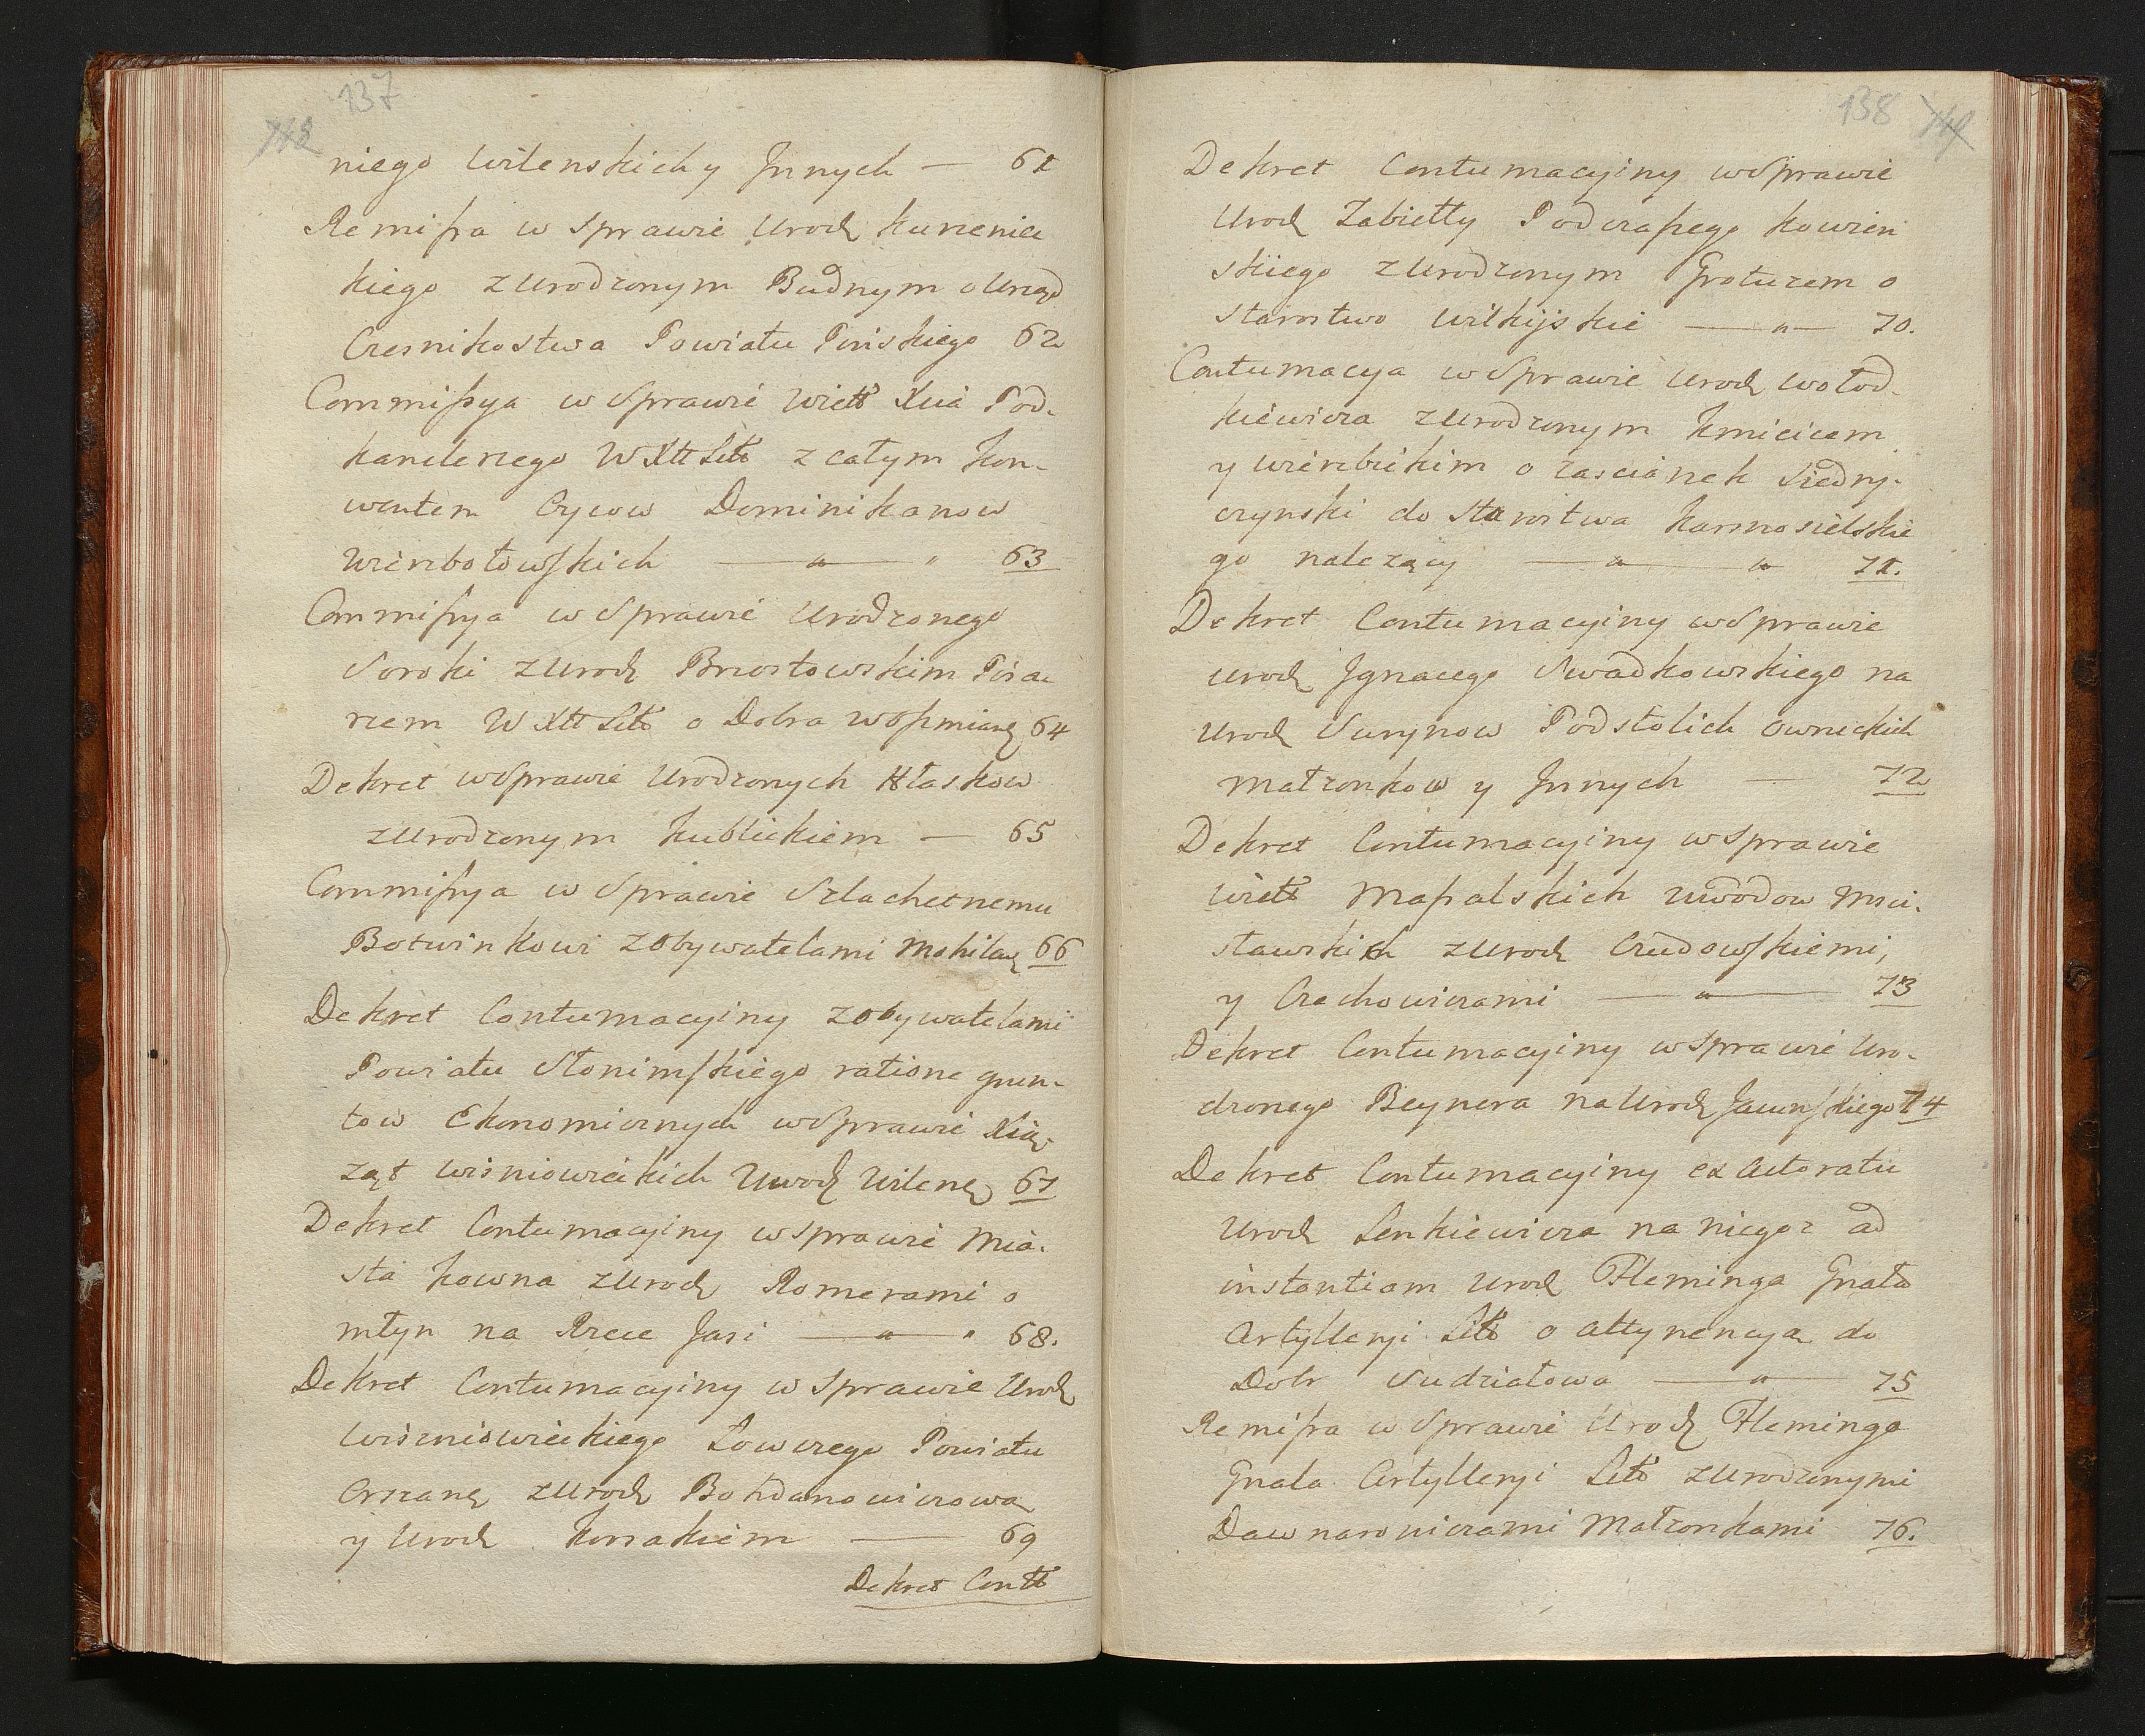 137
niego Wilenskich y Jnnych — 61
Remissa w Sprawie Urodz Kurzenic
kiego z Urodzonym Budnym o Urząd
Czesnikostwa Powiatu Pinskiego 62
Commissya w Sprawie Wiel Xcia Pod-
kanclerzego WXLitt z całym Kon-
wentem Oycow Dominikanow
Wierzbołowskich — " — " 63
Commissya w Sprawie Urodzonego
Soroki z Urodz Brzostowskim Pisa-
rzem WXLitt o Dobra w Oszmianę 64
Dekret w Sprawie Urodzonych Hłaskow
z Urodzonym Kublickiem — 65
Commissya w Sprawie Szlachetnemu
Botwinkowi z Obywatelami Mohilew 66
Dekret Contumacyiny z Obywatelami
Powiatu Słonimskiego ratione grun-
tow Ekonomicznych w Sprawie Xią-
żąt Wisniowieckich Uwodz Wilenę 67
Dekret Contumacyiny w Sprawie Mia-
sta Kowna z Urodz Romerami o
młyn na Rzece Jasi — " — " 68.
Dekret Contumacyiny w Sprawie Urodz
Wiszniowieckiego Łowczego Powiatu
Orszanę z Urodz Bohdanowiczową
y Urodz Korsakiem — 69
Dekret Contt
138
Dekret Contumacyiny w Sprawie
Urodz Zabiełły Podczaszego Kowien
skiego z Urodzonym Grotuzem o
Starostwo Wilkijskie — " — 70.
Contumacya w Sprawie Urodz Wołod-
kiewicza z Urodzonym Kmicicem
y Wierzbickim o zascianek Siedny-
czynski do Starostwa Karmosielskie
go należący — " — " 71.
Dekret Contumacyiny w Sprawie
Urodz Jgnacego Swadkowskiego na
Urodz Surynow Podstolich Owruckich
Małzonkow y Jnnych — 72
Dekret Contumacyiny w Sprawie
Wiel Massalskich Uwodow Msci-
sławskich z Urodz Czudowskiemi,
y Czechowiczami — " — 73
Dekret Contumacyiny w Sprawie Uro-
dzonego Beynera na Urodz Jawnskiego 74
Dekret Contumacyiny ex Actoratu
Urodz Senkiewicza na niegoz ad
instantiam Urodz Fleminga Gnała
Artylleryi Litt o attynencyą do
Dobr Sudziałowa — " — 75
Remissa w Sprawie Urodz Fleminga
Gnała Artylleryi Litt z Urodzonymi
Dawnarowiczami Małzonkami 76.